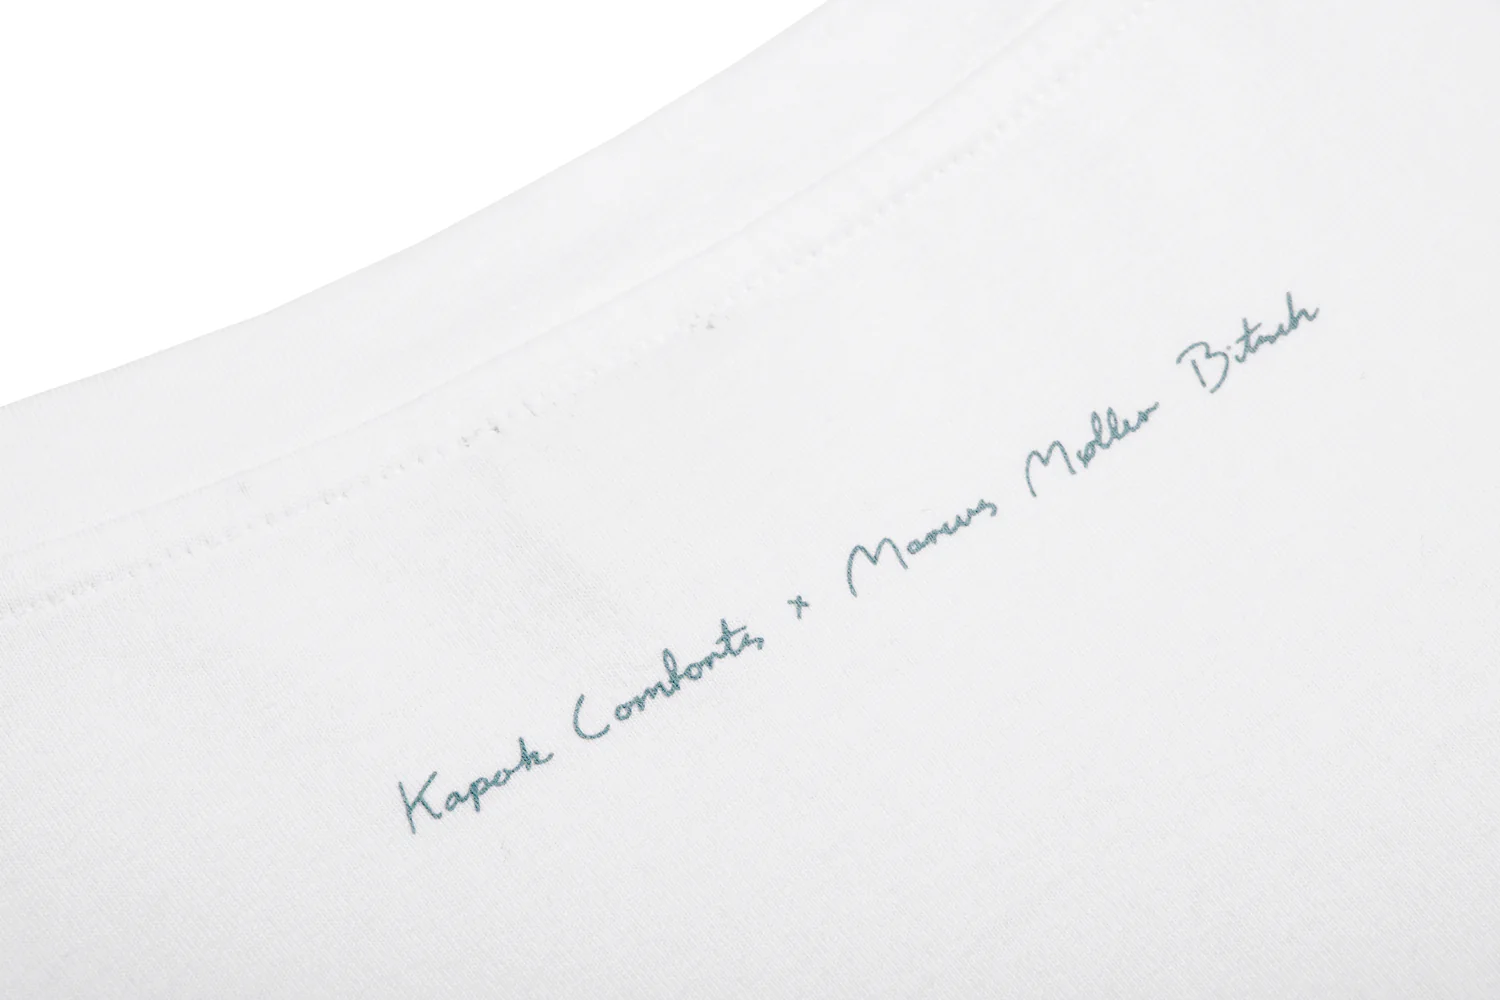 Kapok Comforts x Marcus Møller Bitsch